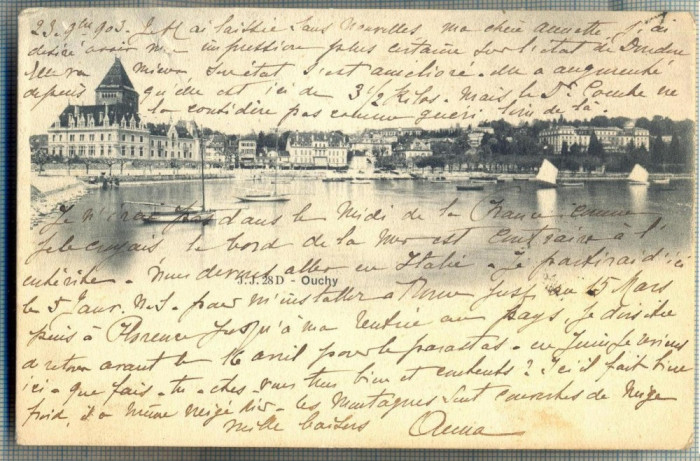 23. 9bre 903. Je t'ai laissée sans nouvelles, ma chère Annette, j'ai
désiré avoir une impression plus certaine sur l'état de
va mieux son état s'est amélioré. Elle a augmenté
depuis qu'elle est ici de 3 1/2 kilos. Mais le Dr. Combe ne
la considère pas comme guérie. Loin de là.
Je n'irai pas dans le Midi de la France comme
je le croyais, le bord de la mer est contraire à l'
entérite. Nous devons aller en Italie. Je partirai d'ici
J.J. 28D - Ouchy
le 5 Janv. N.S. pour m'installer à Rome jusqu'au 15 Mars
puis à Florence jusqu'à ma rentrée au pays. Je dois être
de retour avant le 16 avril pour le parastas. en
bien et contents? Ici il fait bien
ici. que fais-tu. chez vous tous
froid, il a même neigé hier. les Montagnes sont couvertes de neige
Mille baisers